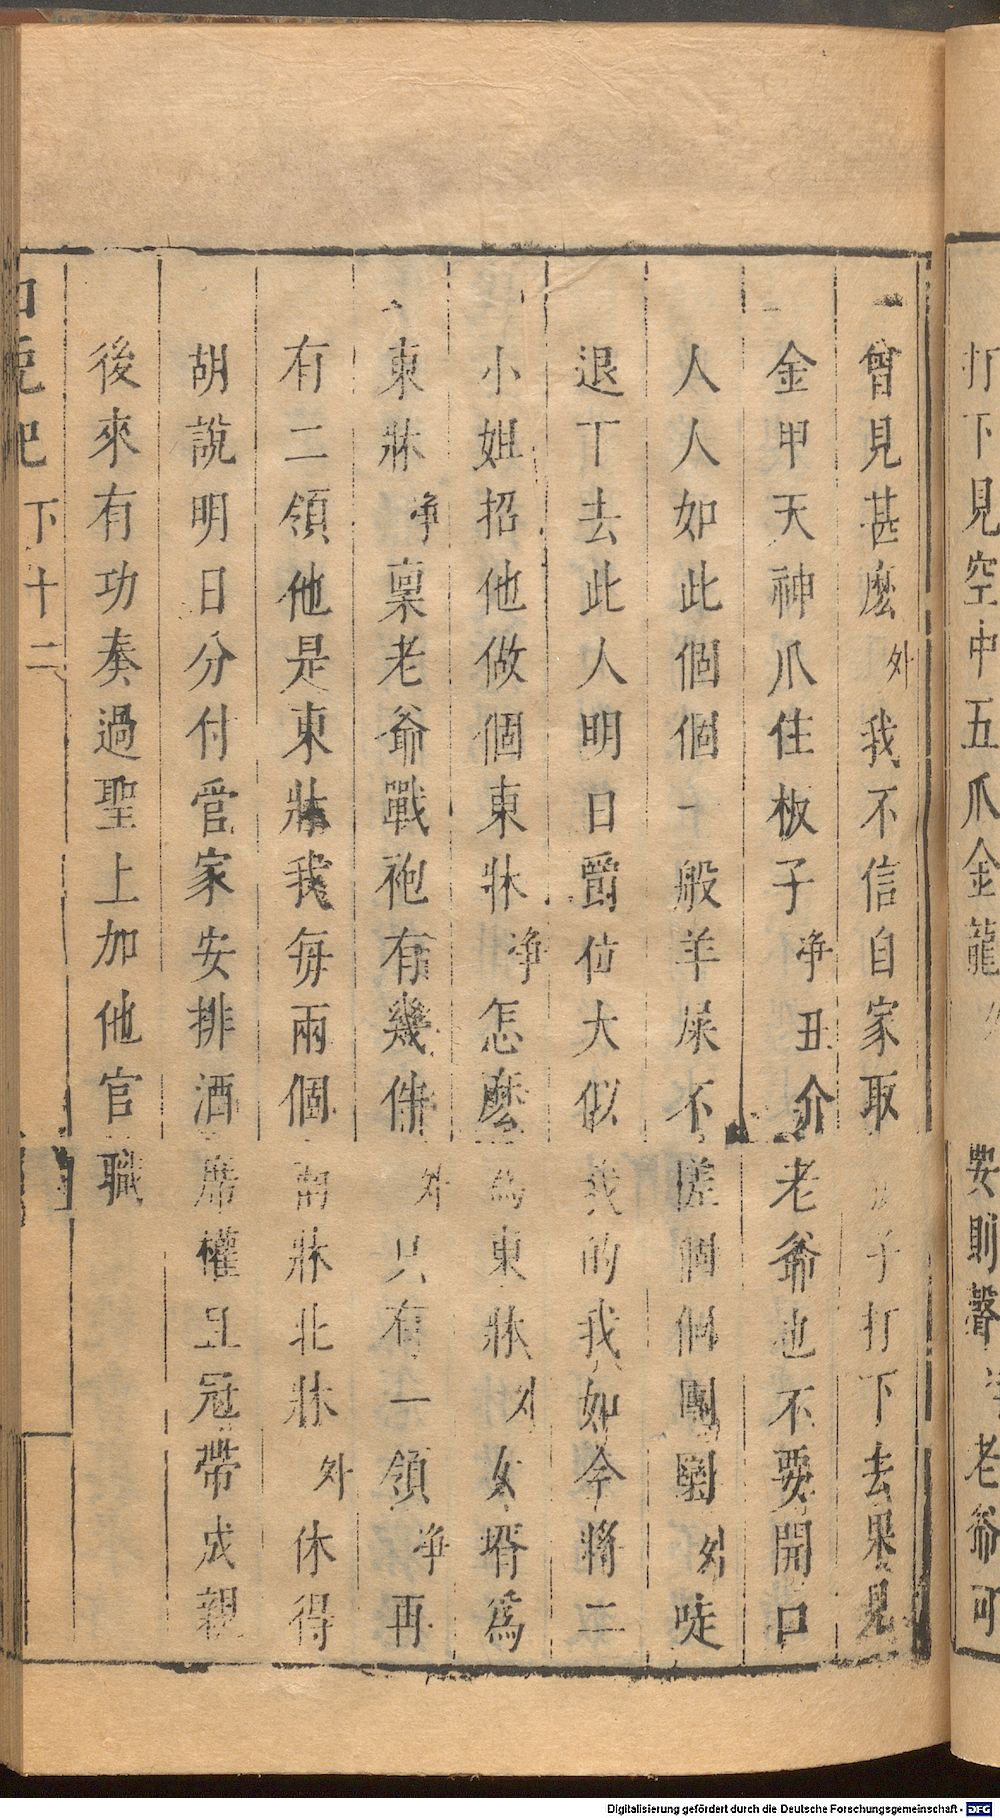 打下見空中五爪金龍 外 安則聲 净 老爺可
曾見甚麼 外 我不信自家取 子打下去果見
金甲天神爪住板子 净丑介 老爺也不要開口
人人如此個個一般羊屎不搓個個團圝 外 唗
退丁去此人明日爵位大似我的我如今將二
小姐招他做個東牀 净 怎麽爲東牀 外 女壻爲
東牀 净 稟老爺戰袍有幾件 外 只有一領 净 再
有二領他是東牀我每兩個南牀北牀 外 休得
胡說明日分付官家安排酒席權且冠帶成親
後來有功奏過聖上加他官職
白兔記 下 十二
Digitalisierung gefördert durch die Deutsche Forschungsgemeinschaft - DFG